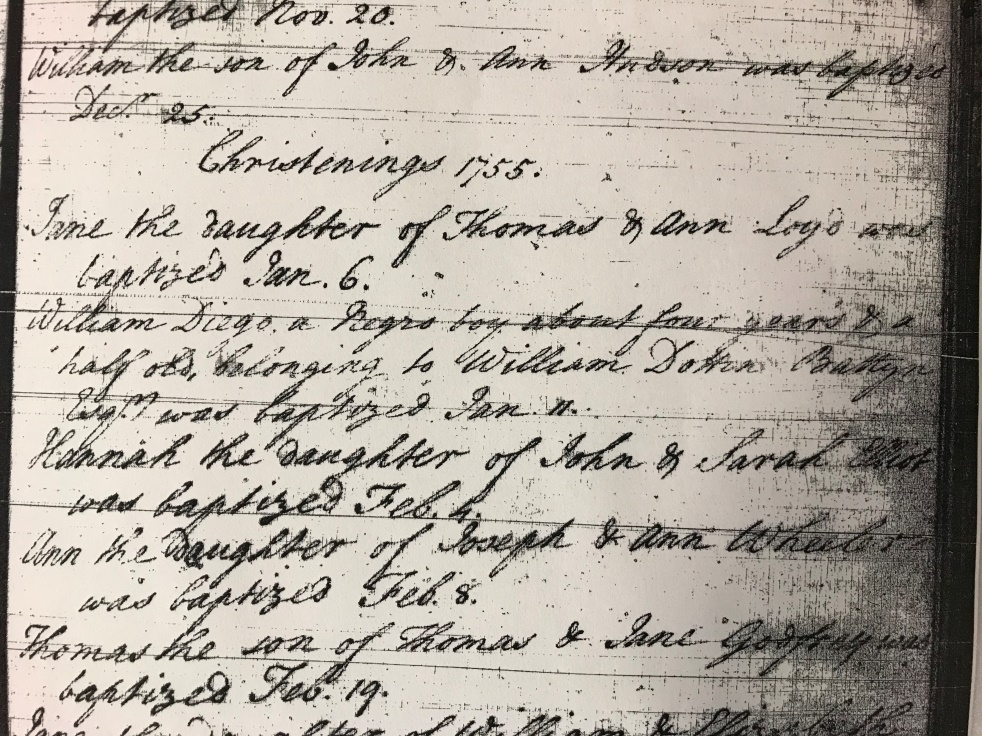 baptized Nov. 20.
William the son of John & Ann Hudson was baptized
Decr. 25.
Christenings 1755.
Jane the daughter of Thomas & Ann Loyd was
baptized Jan. 6.
William Diego a Negro boy about four years & a
half old, belonging to William Dottin Battyn
Esqr. was baptized Jan. 11.
Hannah the daughter of John & Sarah Elliot
was baptized Feb. 4.
Ann the Daughter of Joseph & Ann Wheeler
was baptized Feb. 8.
Thomas the son of Thomas & Jane Godfrey was
baptized Feb. 19.
Jane the daughter of William & Elizabeth